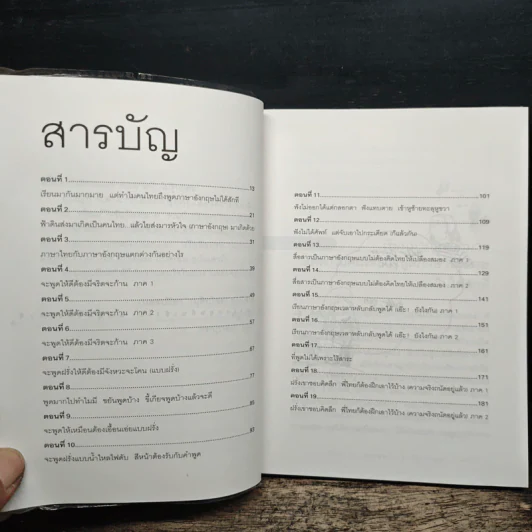 สารบัญ
ตอนที่ 1 13
เรียนมากันมากมาย แต่ทำไมคนไทยถึงพูดภาษาอังกฤษไม่ได้สักที
ตอนที่ 2 21
ฟ้าดินส่งมาเกิดเป็นคนไทย แล้วไยส่งมารหัวใจ (ภาษาอังกฤษ) มาเกิดด้วย
ตอนที่ 3 31
ภาษาไทยกับภาษาอังกฤษแตกต่างกันอย่างไร
ตอนที่ 4 39
จะพูดให้ดีต้องมีจริตจะก้าน ภาค 1
ตอนที่ 5 49
จะพูดให้ดีต้องมีจริตจะก้าน ภาค 2
ตอนที่ 6 67
จะพูดให้ดีต้องมีจริตจะก้าน ภาค 3
ตอนที่ 7 77
จะพูดฝรั่งให้ดีต้องมีจังหวะจะโคน (แบบฝรั่ง)
ตอนที่ 8 85
พูดมากไปทำไมมี ขยันพูดบ้าง ขี้เกียจพูดบ้างแล้วจะดี
ตอนที่ 9 93
จะพูดให้เหมือนต้องเอื้อนเอ่อแบบฝรั่ง
ตอนที่ 10
จะพูดฝรั่งแบบน้ำไหลไฟดับ สีหน้าต้องรับกับคำพูด
ตอนที่ 11 101
ฟังไม่ออกได้แต่กลอกตา ฟังแทบตาย เข้าหูซ้ายทะลุหูขวา
ตอนที่ 12 109
ฟังไม่ได้ศัพท์ แต่จับเอาไปกระเดียด (กันด้วยกัน)
ตอนที่ 13 119
สื่อสารเป็นภาษาอังกฤษแบบไม่ต้องคิดไทยให้เปลืองสมอง ภาค 1
ตอนที่ 14 129
สื่อสารเป็นภาษาอังกฤษแบบไม่ต้องคิดไทยให้เปลืองสมอง ภาค 2
ตอนที่ 15 141
เรียนภาษาอังกฤษเวลาหลับกลับพูดได้ เอ๊ะ! ยังไงกัน ภาค 1
ตอนที่ 16 151
เรียนภาษาอังกฤษเวลาหลับกลับพูดได้ เอ๊ะ! ยังไงกัน ภาค 2
ตอนที่ 17 161
ที่พูดไม่ได้เพราะไร้สาระ
ตอนที่ 18 171
ฝรั่งเขาชอบคิดลึก พี่ไทยก็ต้องฝึกเอาไว้บ้าง (ความจริงถนัดอยู่แล้ว) ภาค 1
ตอนที่ 19 181
ฝรั่งเขาชอบคิดลึก พี่ไทยก็ต้องฝึกเอาไว้บ้าง (ความจริงถนัดอยู่แล้ว) ภาค 2